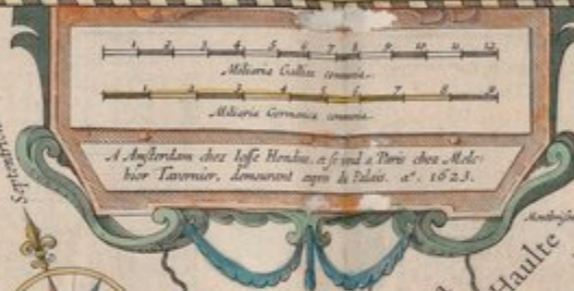 1 2 3 4 5 6 7 8 9 10 11 12
Miliaria Galliæ comunia.
1 2 3 4 5 6 7 8 9
Miliaria Germanica comunia.
A Amsterdam chez Iosse Hondius, et se vend a Paris chez Melc-
hior Tavernier, demeurant au di Palais. aº. 1623.
Septentrio
Haulte